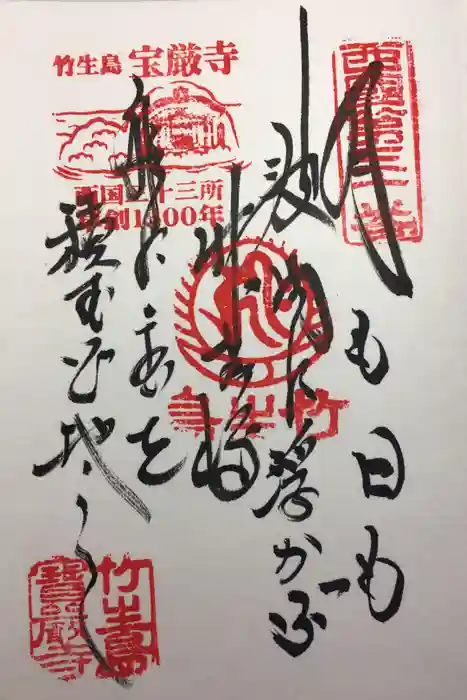 西国第三十番
月も日も
波間に浮かぶ
竹生嶋
舟に宝を
積む心地して
竹生島 宝厳寺
西国三十三所
草創1300年
竹生島
竹生島
寶嚴寺